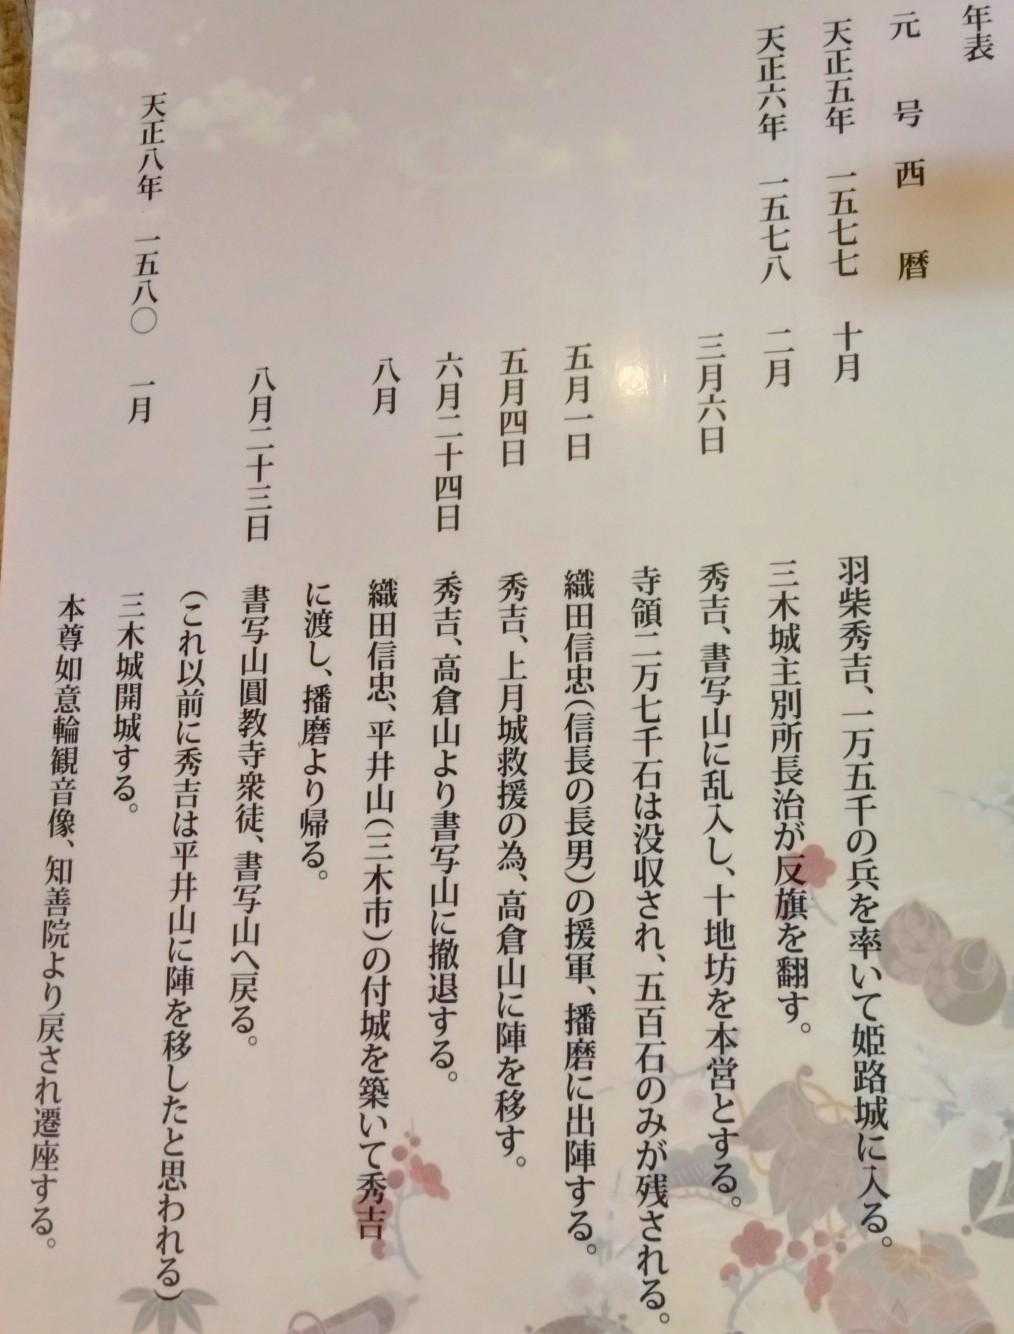 年表
元号 西暦
天正五年 一五七七 十月 羽柴秀吉、一万五千の兵を率いて姫路城に入る。
天正六年 一五七八 二月 三木城主別所長治が反旗を翻す。
三月六日 秀吉、書写山に乱入し、十地坊を本営とする。
寺領二万七千石は没収され、五百石のみが残される。
五月一日 織田信忠(信長の長男)の援軍、播磨に出陣する。
五月四日 秀吉、上月城救援の為、高倉山に陣を移す。
六月二十四日 秀吉、高倉山より書写山に撤退する。
八月 織田信忠、平井山(三木市)の付城を築いて秀吉
に渡し、播磨より帰る。
八月二十三日 書写山圓教寺衆徒、書写山へ戻る。
(これ以前に秀吉は平井山に陣を移したと思われる)
天正八年 一五八〇 一月 三木城開城する。
本尊如意輪観音像、知善院より戻され遷座する。